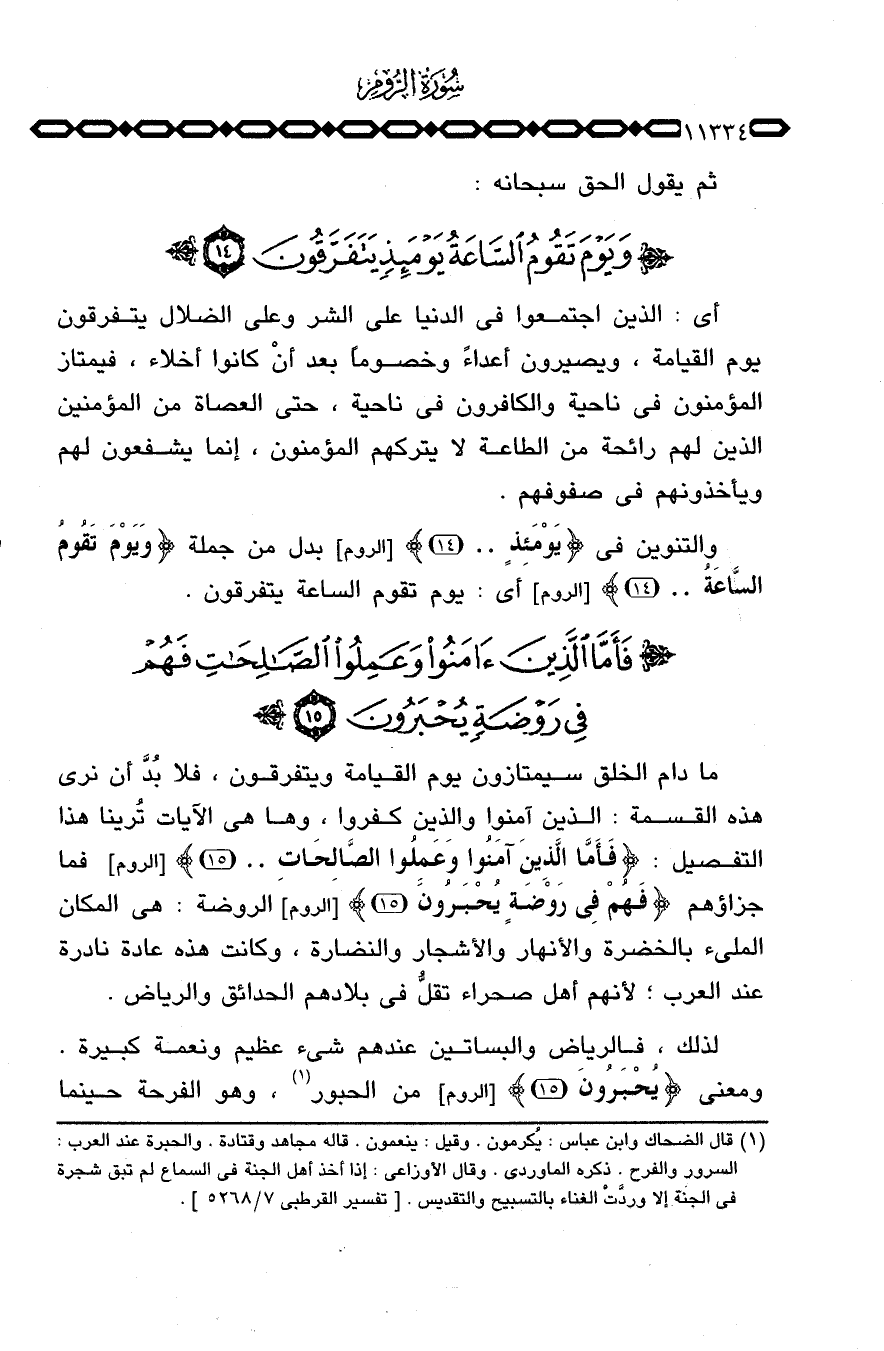 سُورَةُ الرُّومِ
١١٣٣٤
ثم يقول الحق سبحانه :
﴿ وَيَوْمَ تَقُومُ ٱلسَّاعَةُ يَوْمَئِذٍ يَتَفَرَّقُونَ ١٤ ﴾
أى : الذين اجتمعوا فى الدنيا على الشر وعلى الضلال يتفرقون
يوم القيامة ، ويصيرون أعداءً وخصوماً بعد أنْ كانوا أخلاء ، فيمتاز
المؤمنون فى ناحية والكافرون فى ناحية ، حتى العصاة من المؤمنين
الذين لهم رائحة من الطاعة لا يتركهم المؤمنون ، إنما يشفعون لهم
ويأخذونهم فى صفوفهم .
والتنوين فى ﴿ يَوْمَئِذٍ .. (١٤) ﴾ [الروم] بدل من جملة ﴿ وَيَوْمَ تَقُومُ
السَّاعَةُ .. (١٤) ﴾ [الروم] أى : يوم تقوم الساعة يتفرقون .
﴿ فَأَمَّا ٱلَّذِينَ ءَامَنُواْ وَعَمِلُواْ ٱلصَّٰلِحَٰتِ فَهُمْ
فِى رَوْضَةٍ يُحْبَرُونَ ١٥ ﴾
ما دام الخلق سيمتازون يوم القيامة ويتفرقون ، فلا بُدَّ أن نرى
هذه القسمة : الذين آمنوا والذين كفروا ، وها هى الآيات تُرينا هذا
التفصيل : ﴿ فَأَمَّا الَّذِينَ آمَنُوا وَعَمِلُوا الصَّالِحَاتِ .. (١٥) ﴾ [الروم] فما
جزاؤهم ﴿ فَهُمْ فِى رَوْضَةٍ يُحْبَرُونَ (١٥) ﴾ [الروم] الروضة : هى المكان
الملىء بالخضرة والأنهار والأشجار والنضارة ، وكانت هذه عادة نادرة
عند العرب ؛ لأنهم أهل صحراء تقلُّ فى بلادهم الحدائق والرياض .
لذلك ، فالرياض والبساتين عندهم شىء عظيم ونعمة كبيرة .
ومعنى ﴿ يُحْبَرُونَ (١٥) ﴾ [الروم] من الحبور(١) ، وهو الفرحة حينما
(١) قال الضحاك وابن عباس : يُكرمون . وقيل : ينعمون . قاله مجاهد وقتادة . والحبرة عند العرب :
السرور والفرح . ذكره الماوردى . وقال الأوزاعى : إذا أخذ أهل الجنة فى السماع لم تبق شجرة
فى الجنة إلا وردَّتْ الغناء بالتسبيح والتقديس . [ تفسير القرطبى ٥٢٦٨/٧ ] .